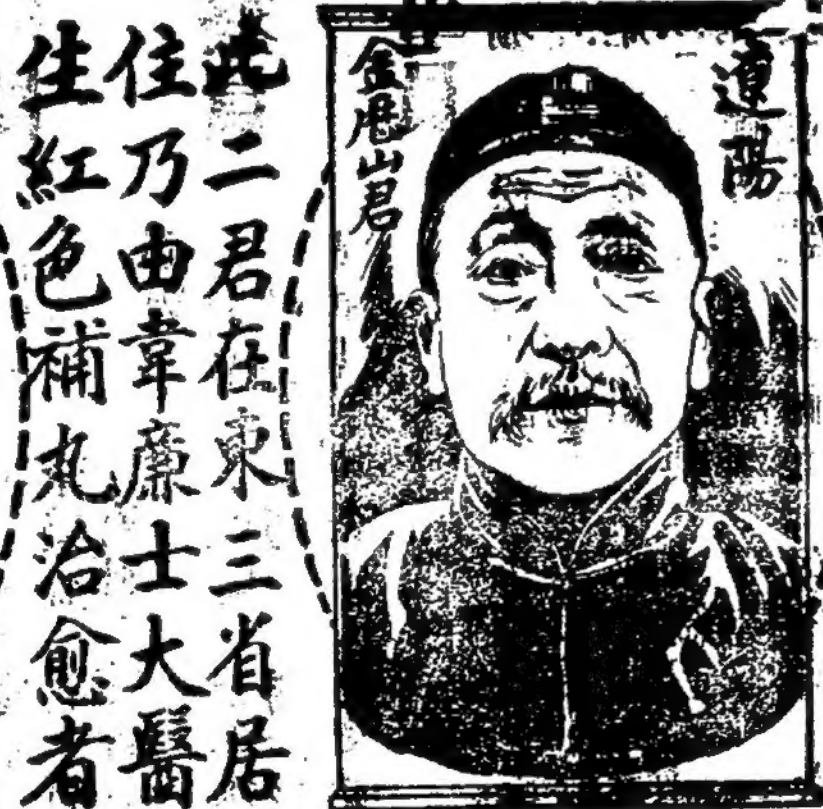 遼陽
金山君
此二君在東三省居
住乃由韋廉士大醫
生紅色補丸治愈者